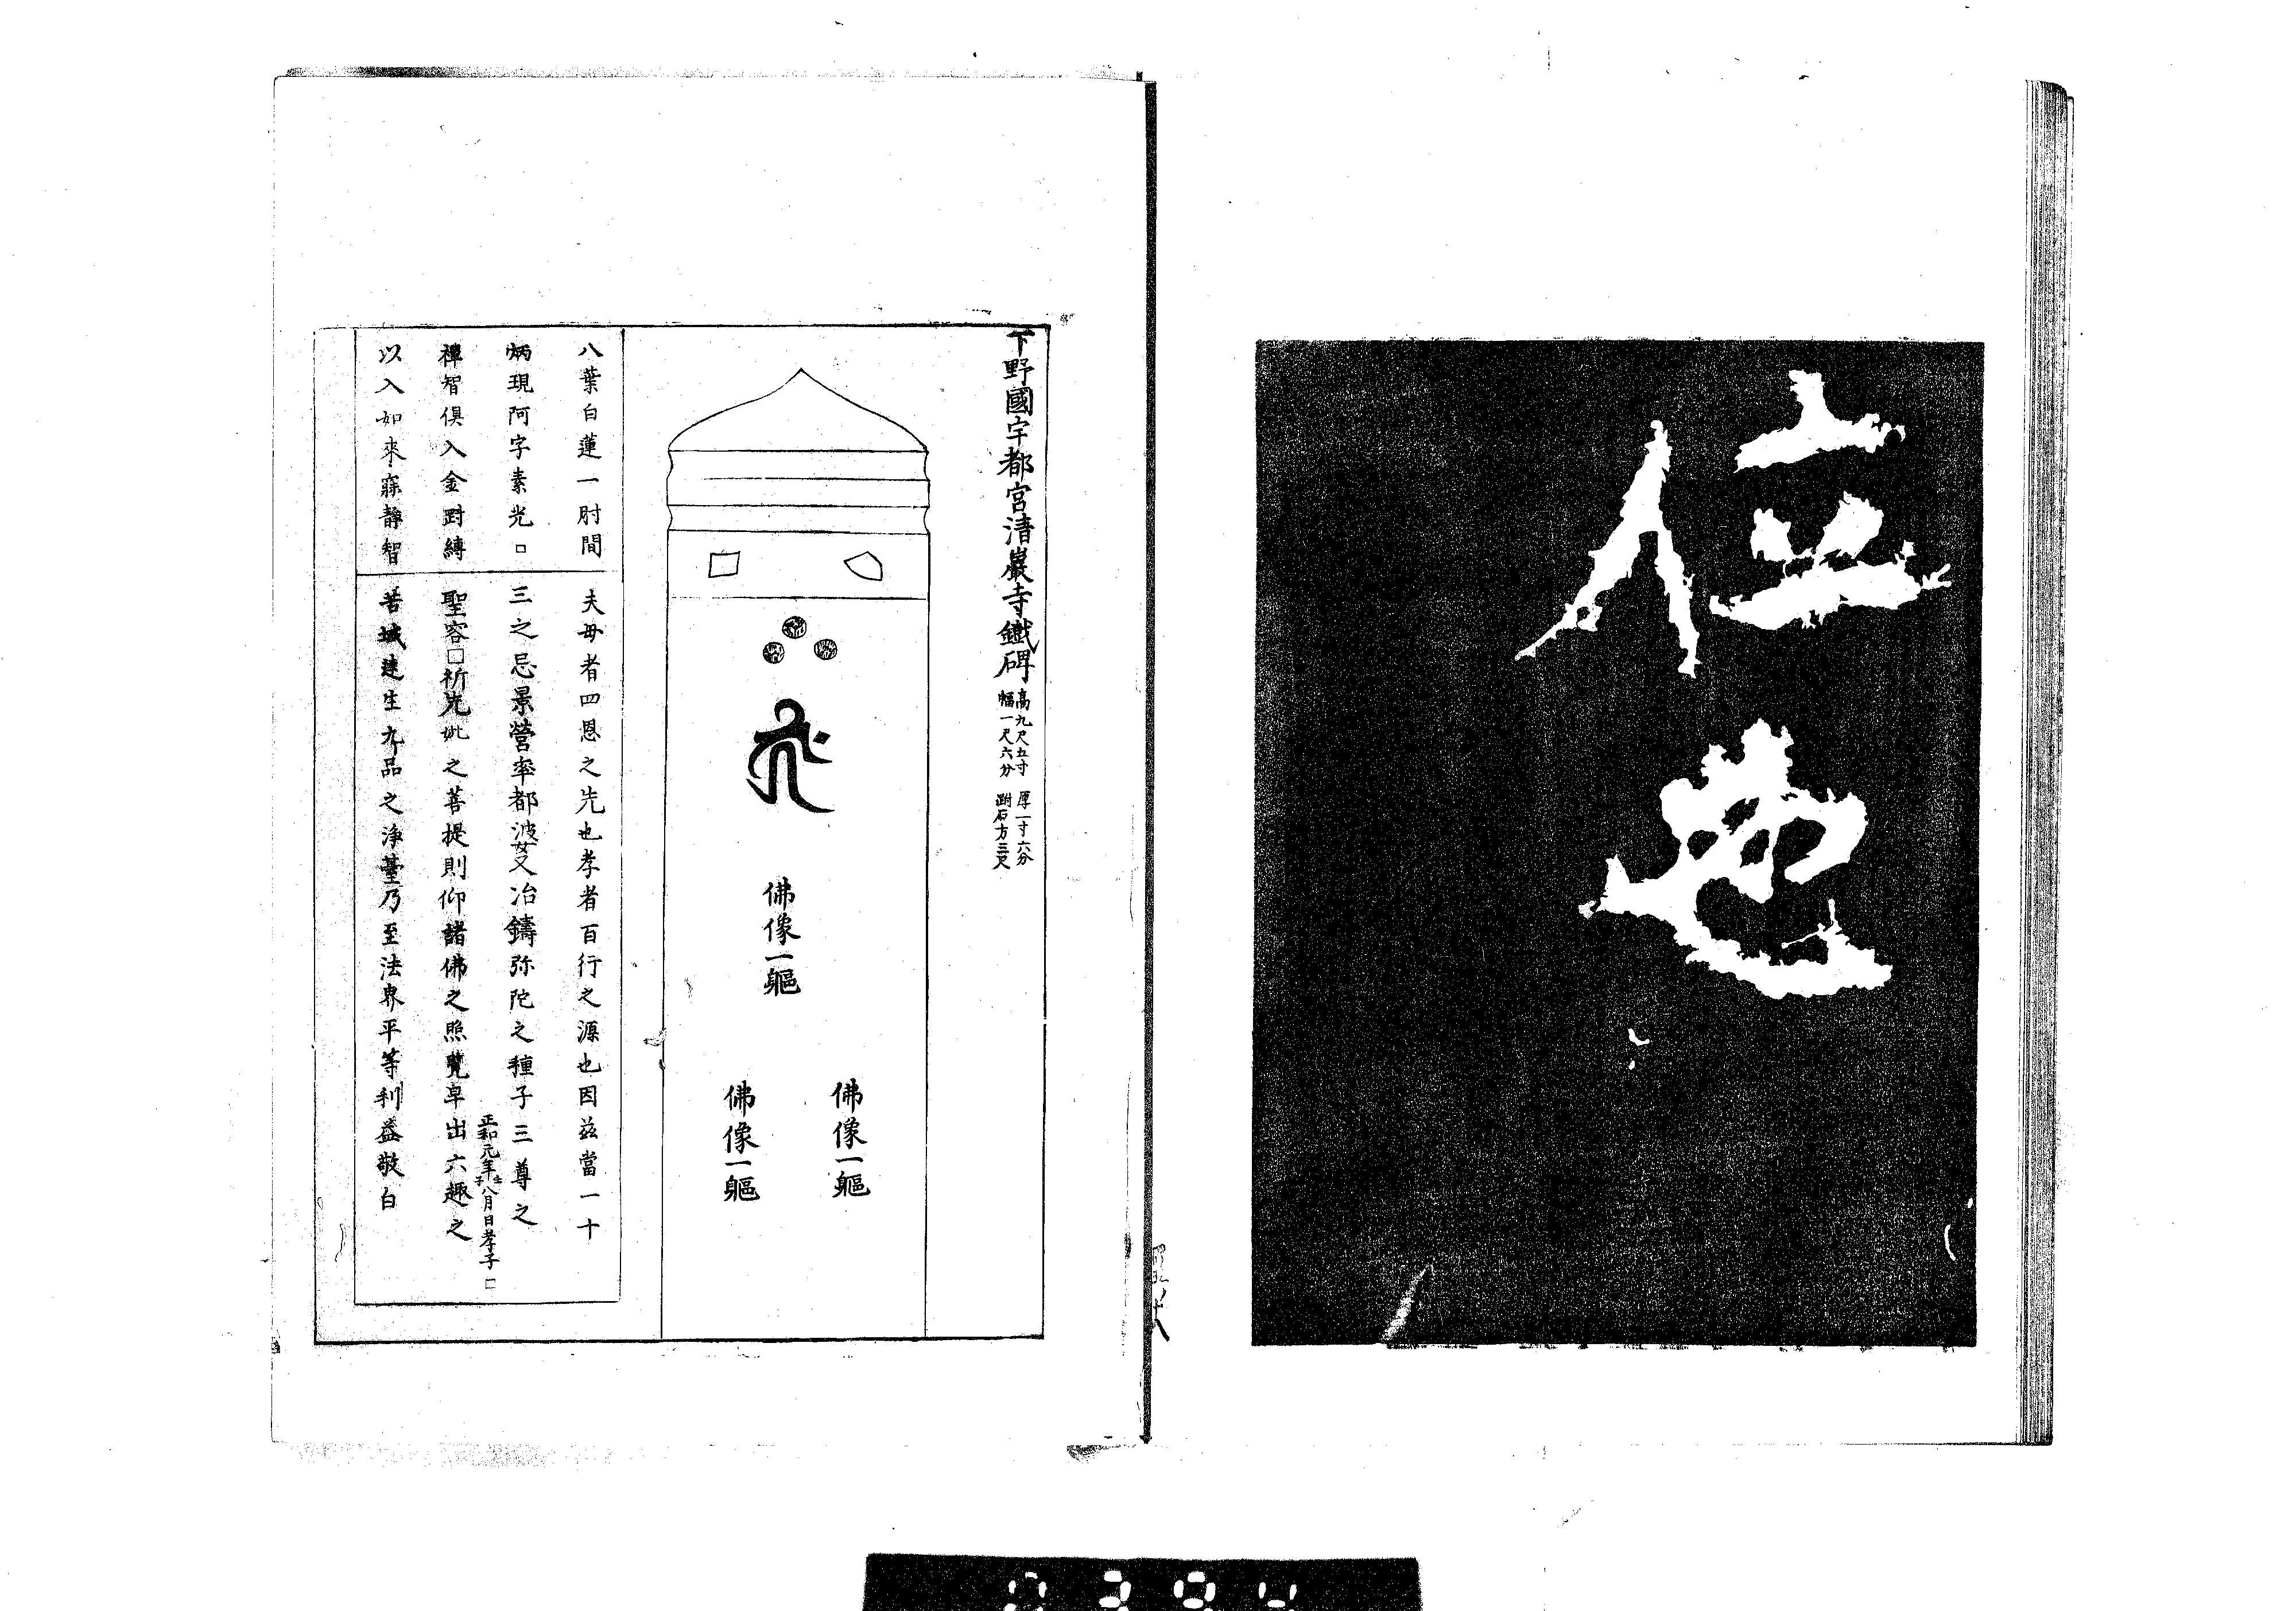 下野國宇都宮清巖寺鐵碑
高九尺五寸
幅一尺六分
厚一寸六分
跗石方三尺
佛像一軀
佛像一軀
佛像一軀
八葉白蓮一肘間
炳現阿字素光□
禪智俱入金剛縛
以入如來寂靜智
夫母者四恩之先也孝者百行之源也因茲當一十
三之忌景營率都婆又冶鑄弥陀之種子三尊之
正和元年壬子八月日孝子□
聖容□祈先妣之菩提則仰諸佛之照覽早出六趣之
苦域速生九品之淨臺乃至法界平等利益敬白